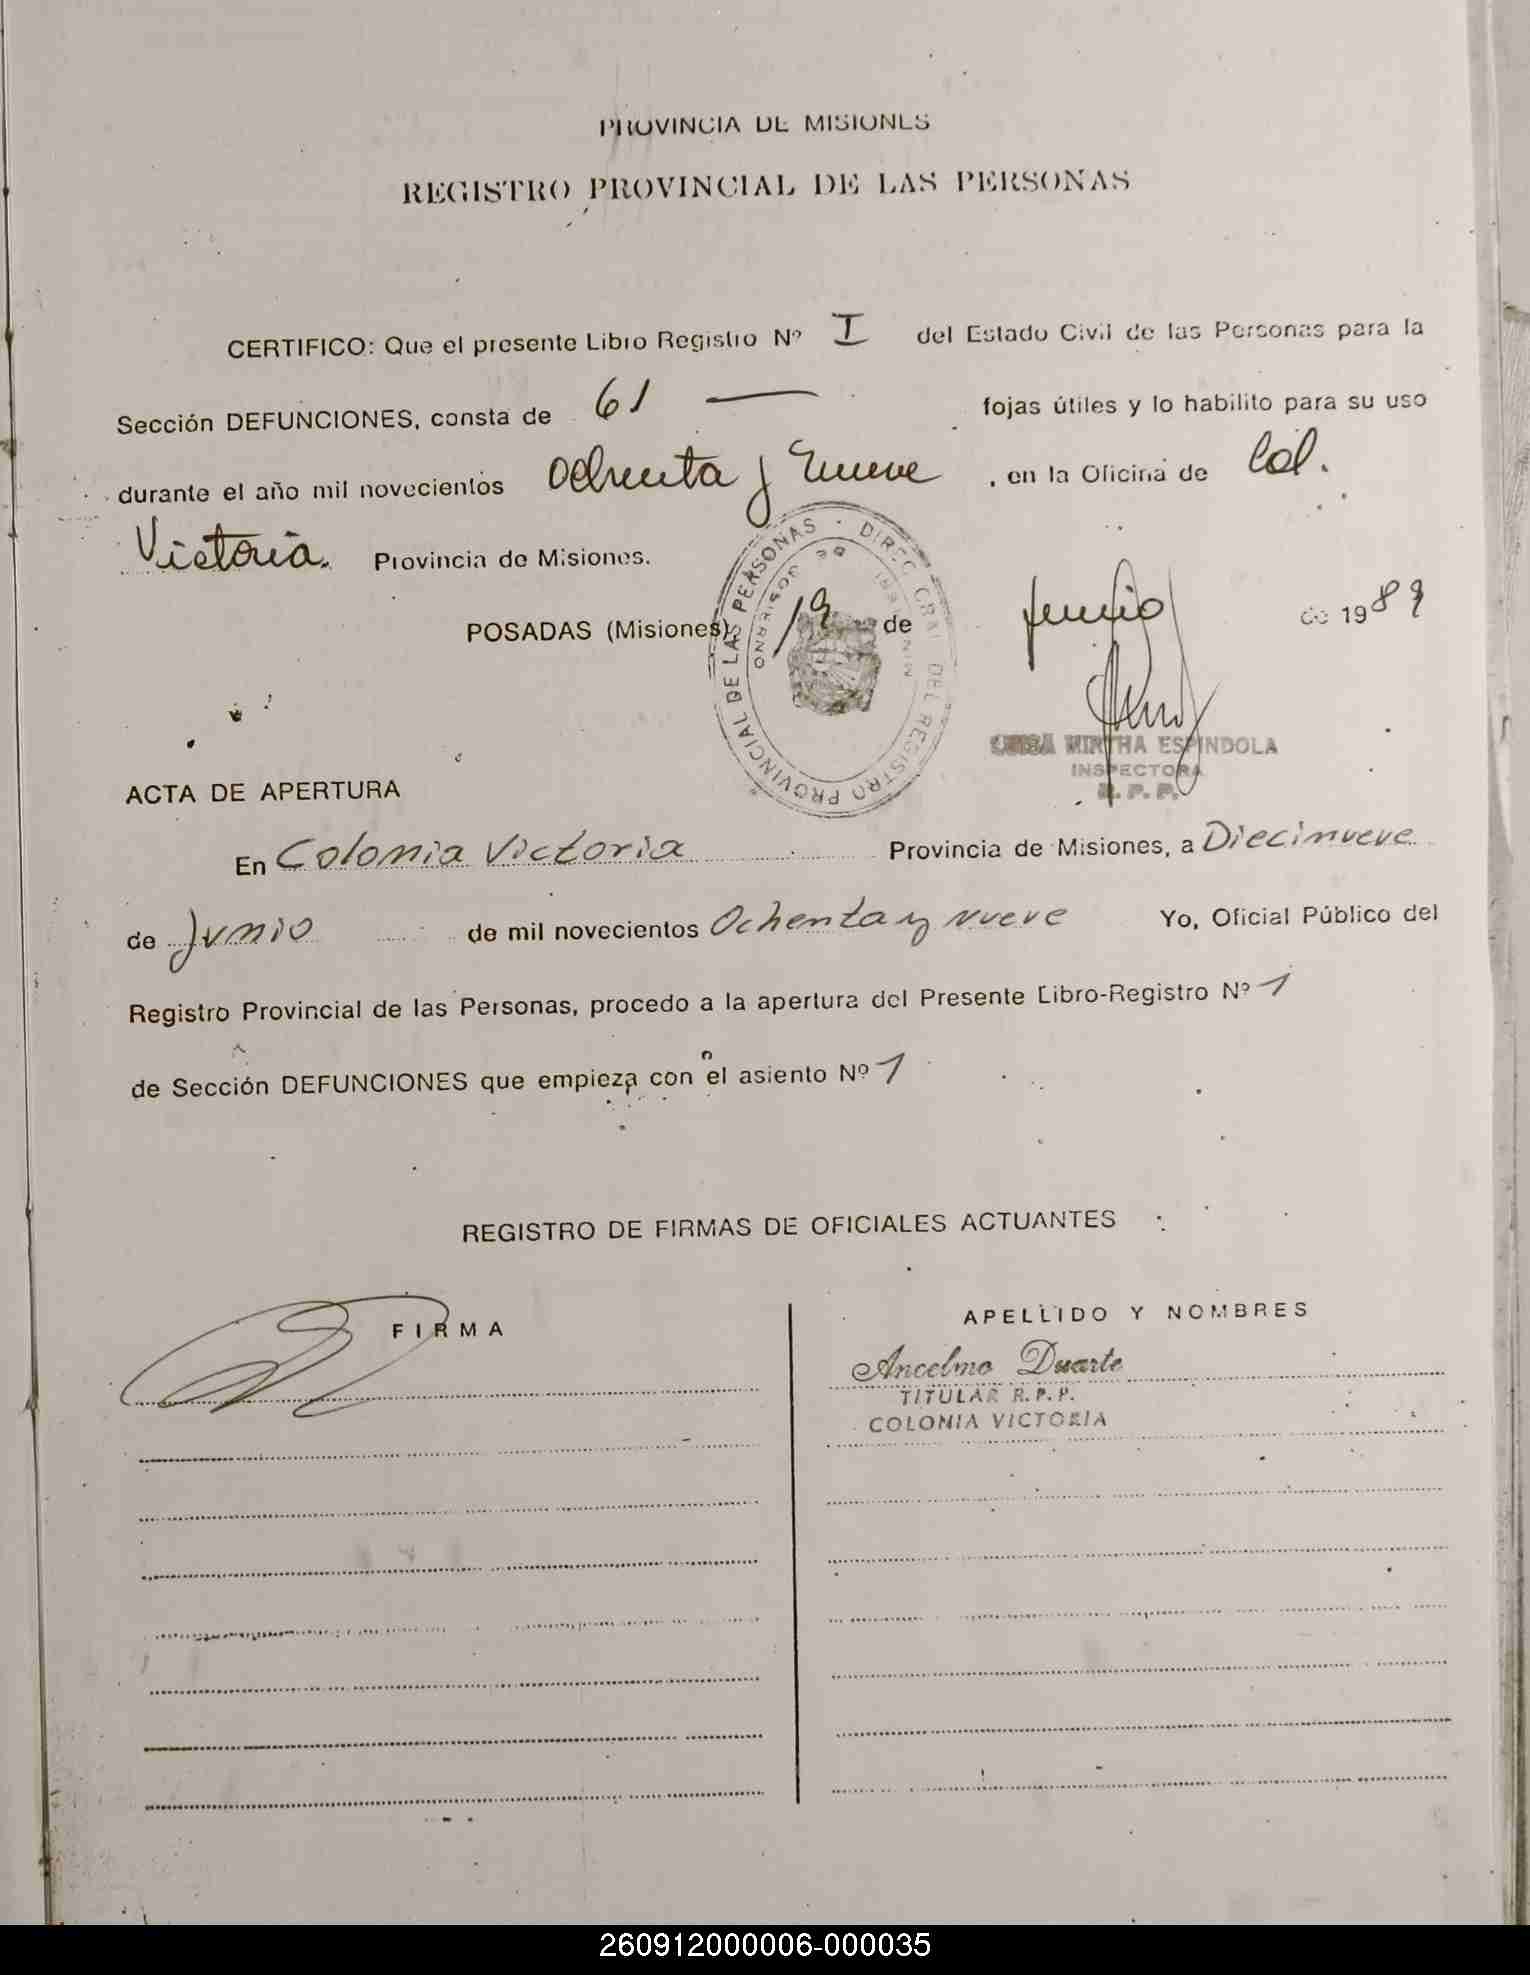 PROVINCIA DE MISIONES
REGISTRO PROVINCIAL DE LAS PERSONAS
CERTIFICO: Que el presente Libro Registro Nº I del Estado Civil de las Personas para la
Sección DEFUNCIONES, consta de 61 — fojas útiles y lo habilito para su uso
durante el año mil novecientos ochenta y nueve, en la Oficina de Col.
Victoria. Provincia de Misiones.
POSADAS (Misiones) 19 de junio de 1989
PROVINCIAL DE LAS PERSONAS · DIREC. GRAL. DEL REGISTRO
MIRTHA ESPINDOLA
INSPECTORA
R. P. P.
ACTA DE APERTURA
En Colonia Victoria Provincia de Misiones, a Diecinueve
de Junio de mil novecientos Ochenta y nueve Yo, Oficial Público del
Registro Provincial de las Personas, procedo a la apertura del Presente Libro-Registro Nº 1
de Sección DEFUNCIONES que empieza con el asiento Nº 1
REGISTRO DE FIRMAS DE OFICIALES ACTUANTES
FIRMA APELLIDO Y NOMBRES
Ancelmo Duarte
TITULAR R. P. P.
COLONIA VICTORIA
260912000006-000035